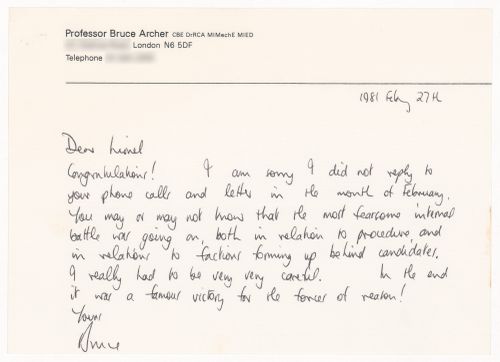 Professor Bruce Archer CBE DrRCA MIMechE MIED
London N6 5DF
Telephone
1981 Feby 27th
Dear Lionel
Congratulations! I am sorry I did not reply to
your phone calls and letter in the month of February.
You may or may not know that the most fearsome internal
battle was going on, both in relation to procedure and
in relation to factions forming up behind candidates.
I really had to be very very careful. In the end
it was a famous victory for the forces of reason!
Yours
Bruce